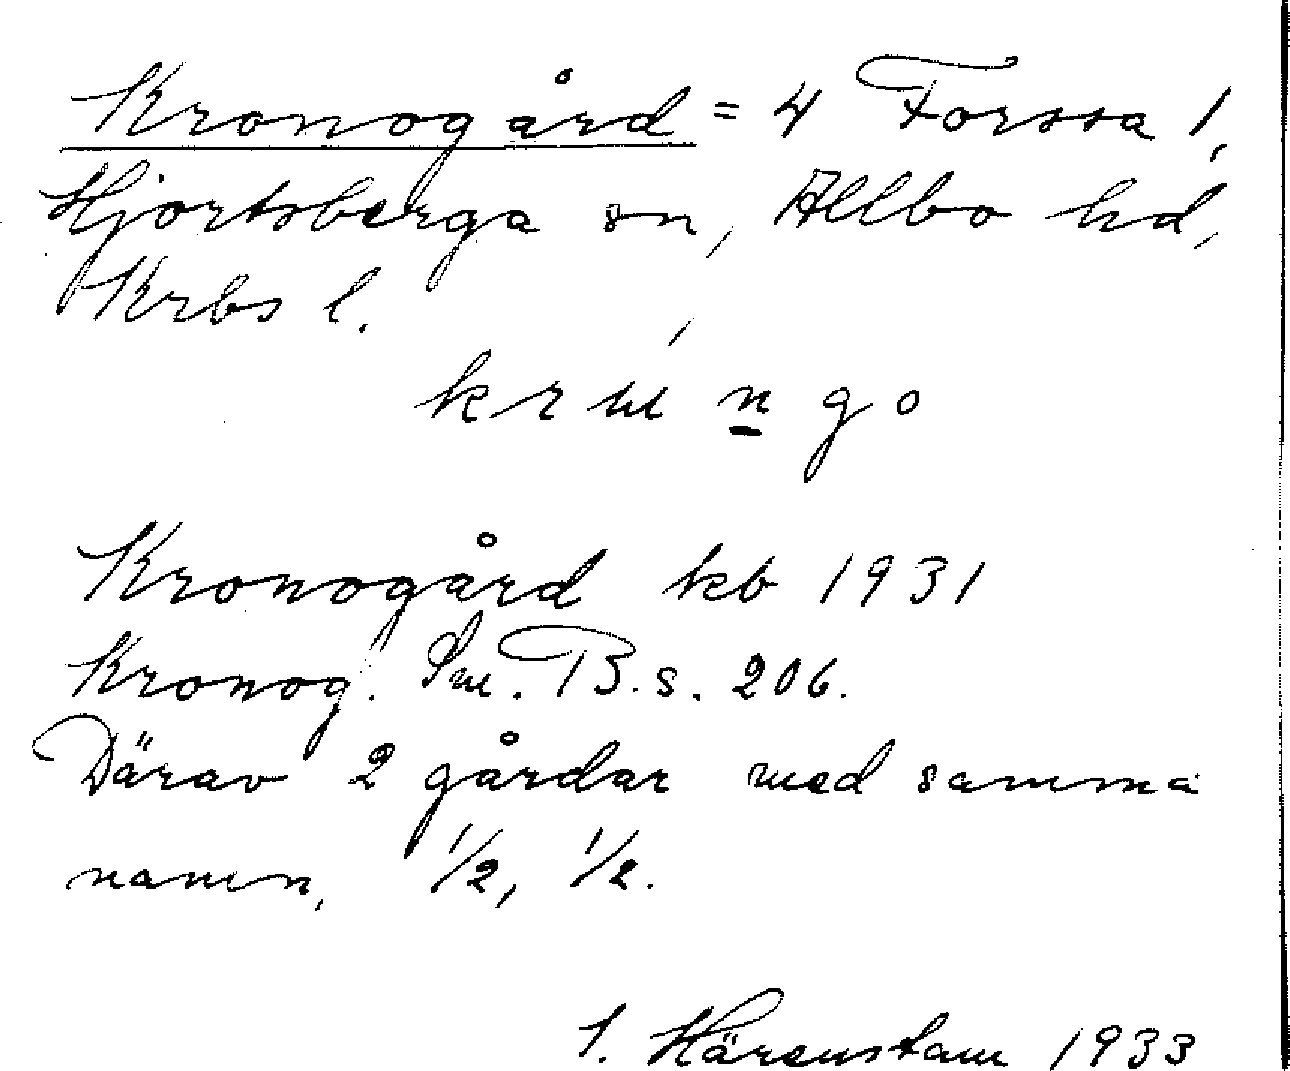 Kronogård = 4 Forssa 1,
Hjortsberga sn, Allbo hd,
Krbs l.
Kronogård kb 1931
Kronog. Sm. B. s. 206.
Därav 2 gårdar med samma
namn, 1/2, 1/2.
Härenstam 1933